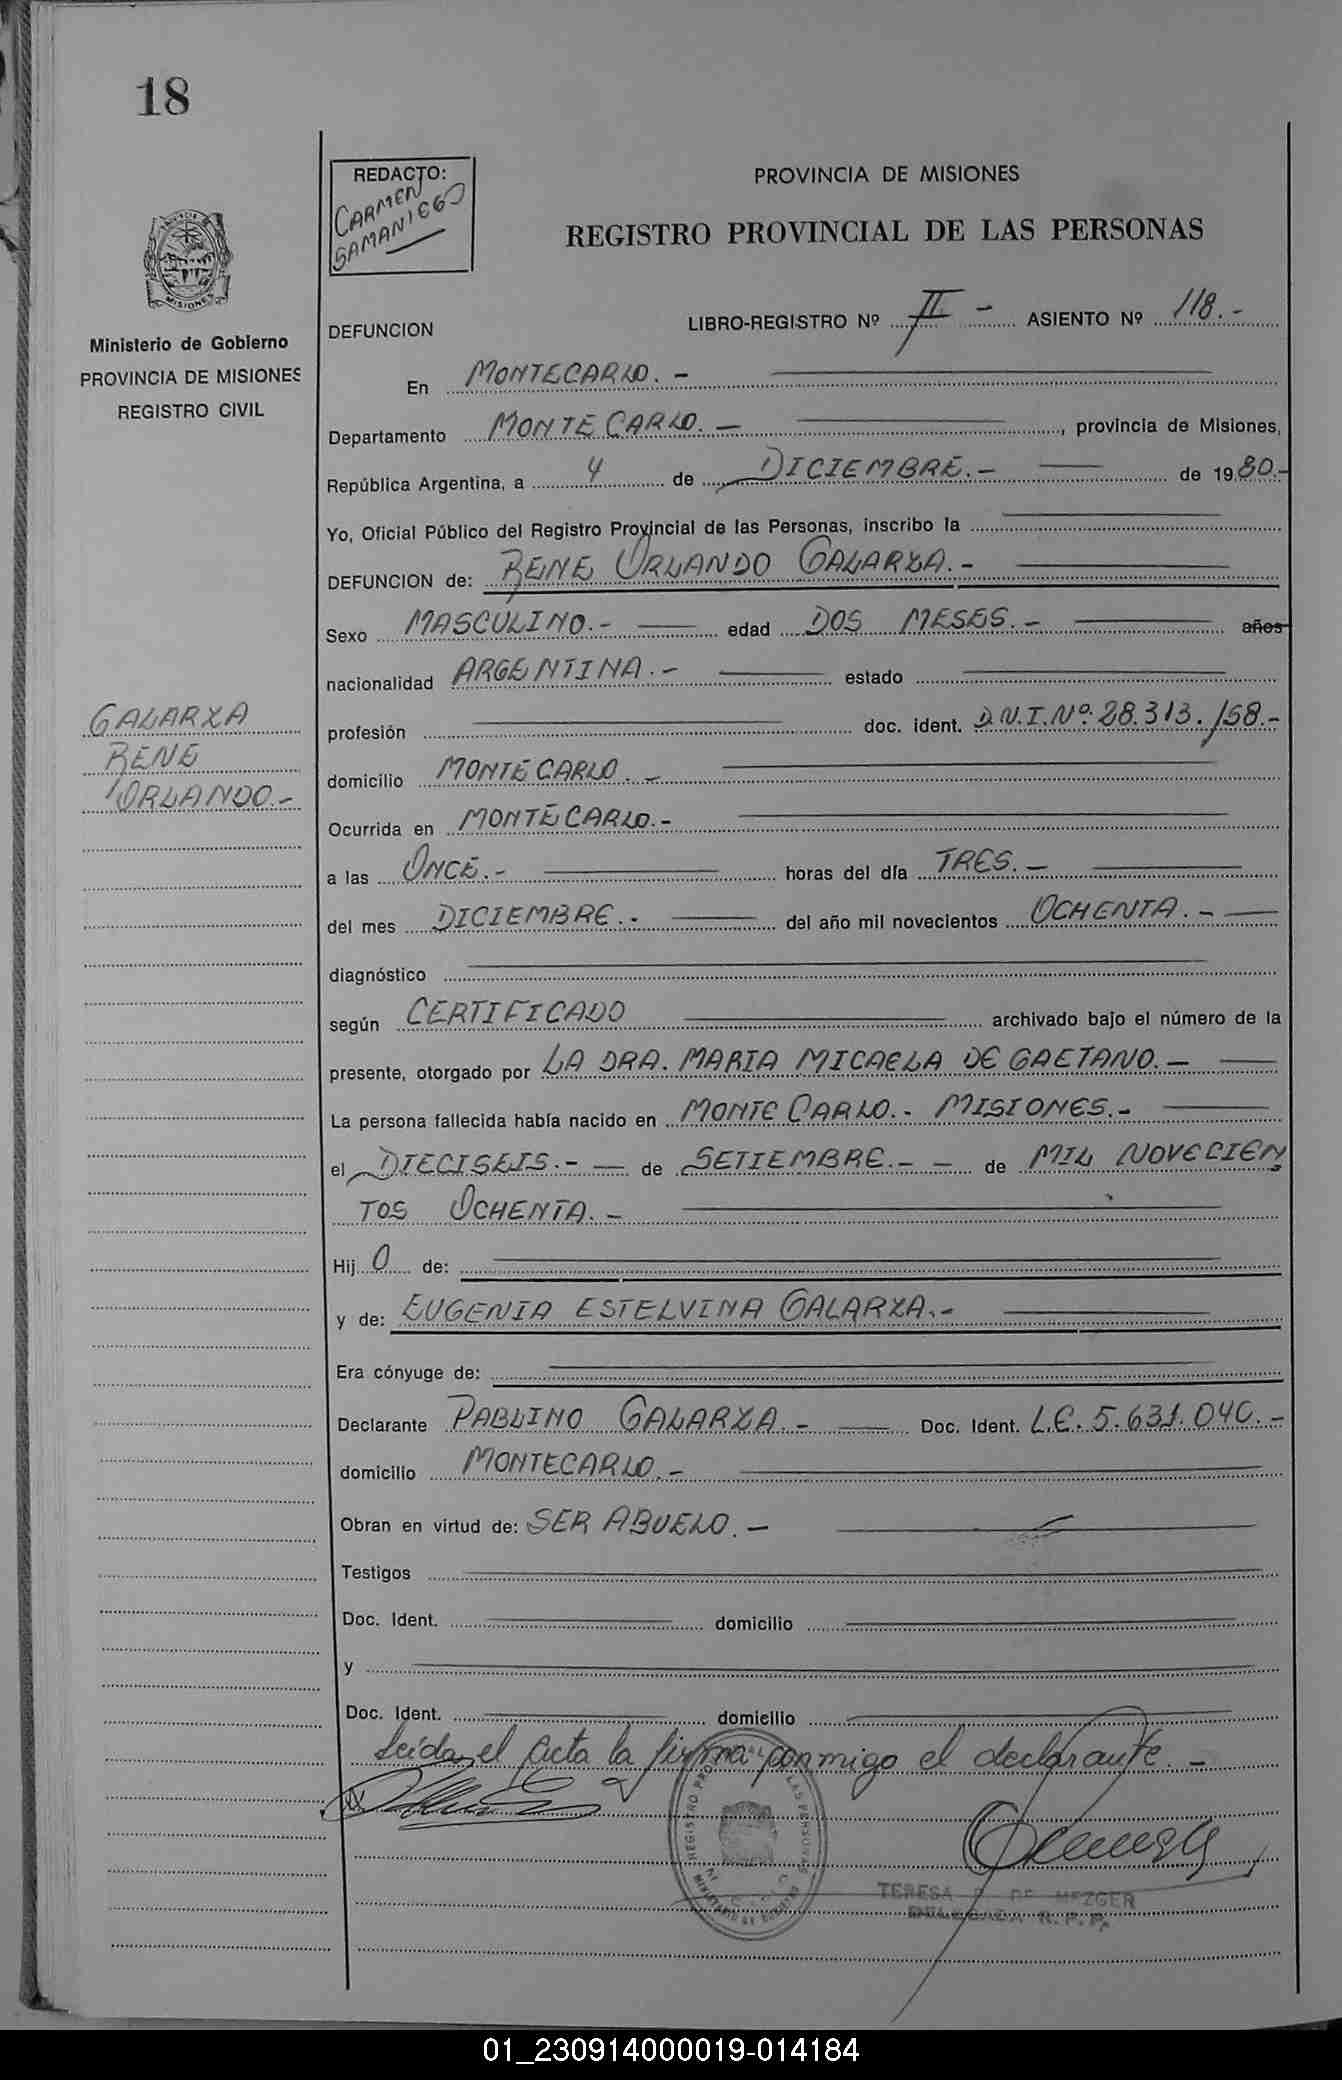 18
REDACTO:
CARMEN
SAMANIEGO
PROVINCIA DE MISIONES
REGISTRO PROVINCIAL DE LAS PERSONAS
MISIONES
Ministerio de Gobierno
PROVINCIA DE MISIONES
REGISTRO CIVIL
DEFUNCION LIBRO-REGISTRO Nº II - ASIENTO Nº 118.-
En MONTECARLO.-
Departamento MONTECARLO.-, provincia de Misiones,
República Argentina, a 4 de DICIEMBRE.- de 1980.-
Yo, Oficial Público del Registro Provincial de las Personas, inscribo la
DEFUNCION de: RENE ORLANDO GALARZA.-
Sexo MASCULINO.- edad DOS MESES.- años
nacionalidad ARGENTINA.- estado
profesión doc. ident. D.N.I.Nº.28.313.158.-
GALARZA
RENE
ORLANDO.-
domicilio MONTECARLO.-
Ocurrida en MONTECARLO.-
a las ONCE.- horas del día TRES.-
del mes DICIEMBRE.- del año mil novecientos OCHENTA.-
diagnóstico
según CERTIFICADO archivado bajo el número de la
presente, otorgado por LA DRA. MARIA MICAELA DE GAETANO.-
La persona fallecida había nacido en MONTE CARLO.- MISIONES.-
el DIECISEIS.- de SETIEMBRE.- de MIL NOVECIEN
TOS OCHENTA.-
Hij O de:
y de: EUGENIA ESTELVINA GALARZA.-
Era cónyuge de:
Declarante PABLINO GALARZA.- Doc. Ident. L.E. 5.631.040.-
domicilio MONTECARLO.-
Obran en virtud de: SER ABUELO.-
Testigos
Doc. Ident. domicilio
y
Doc. Ident. domicilio
Leída el acta la firma conmigo el declarante.-
TERESA DE MEZGER
DELEGADA R.P.P.
01_230914000019-014184